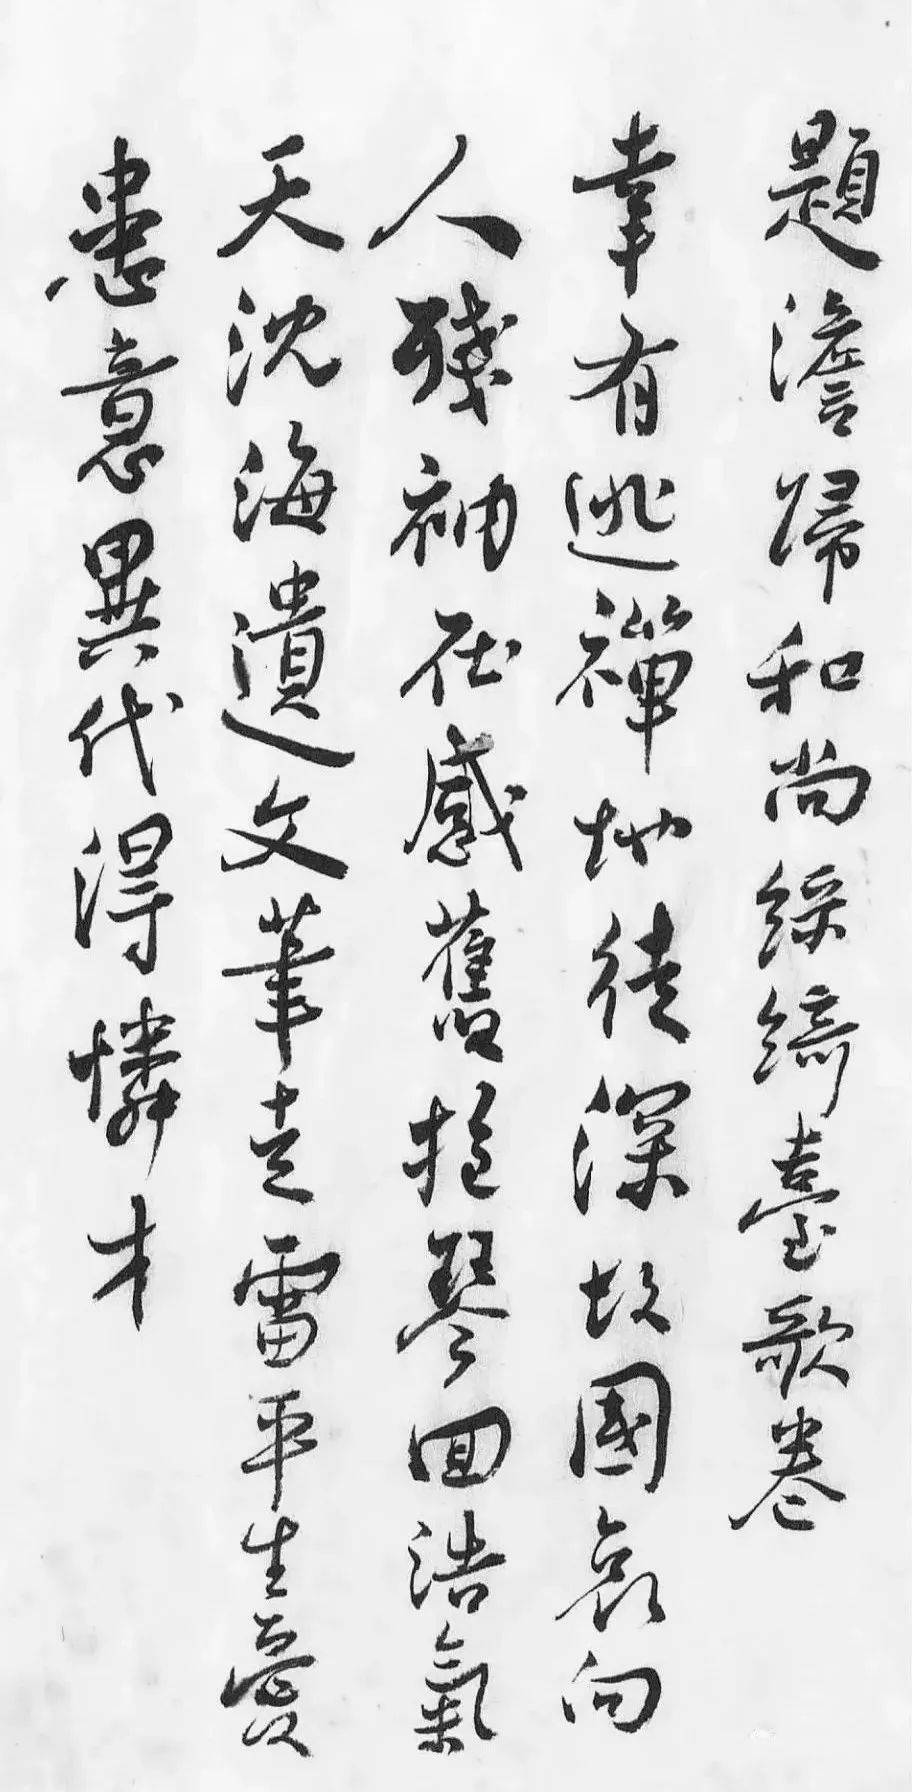 題澹歸和尚綠綺臺歌卷
幸有逃禪地徒深故國哀向
人殘衲在感舊抱琴回浩氣
天沈海遺文筆走雷平生憂
患意異代得憐才